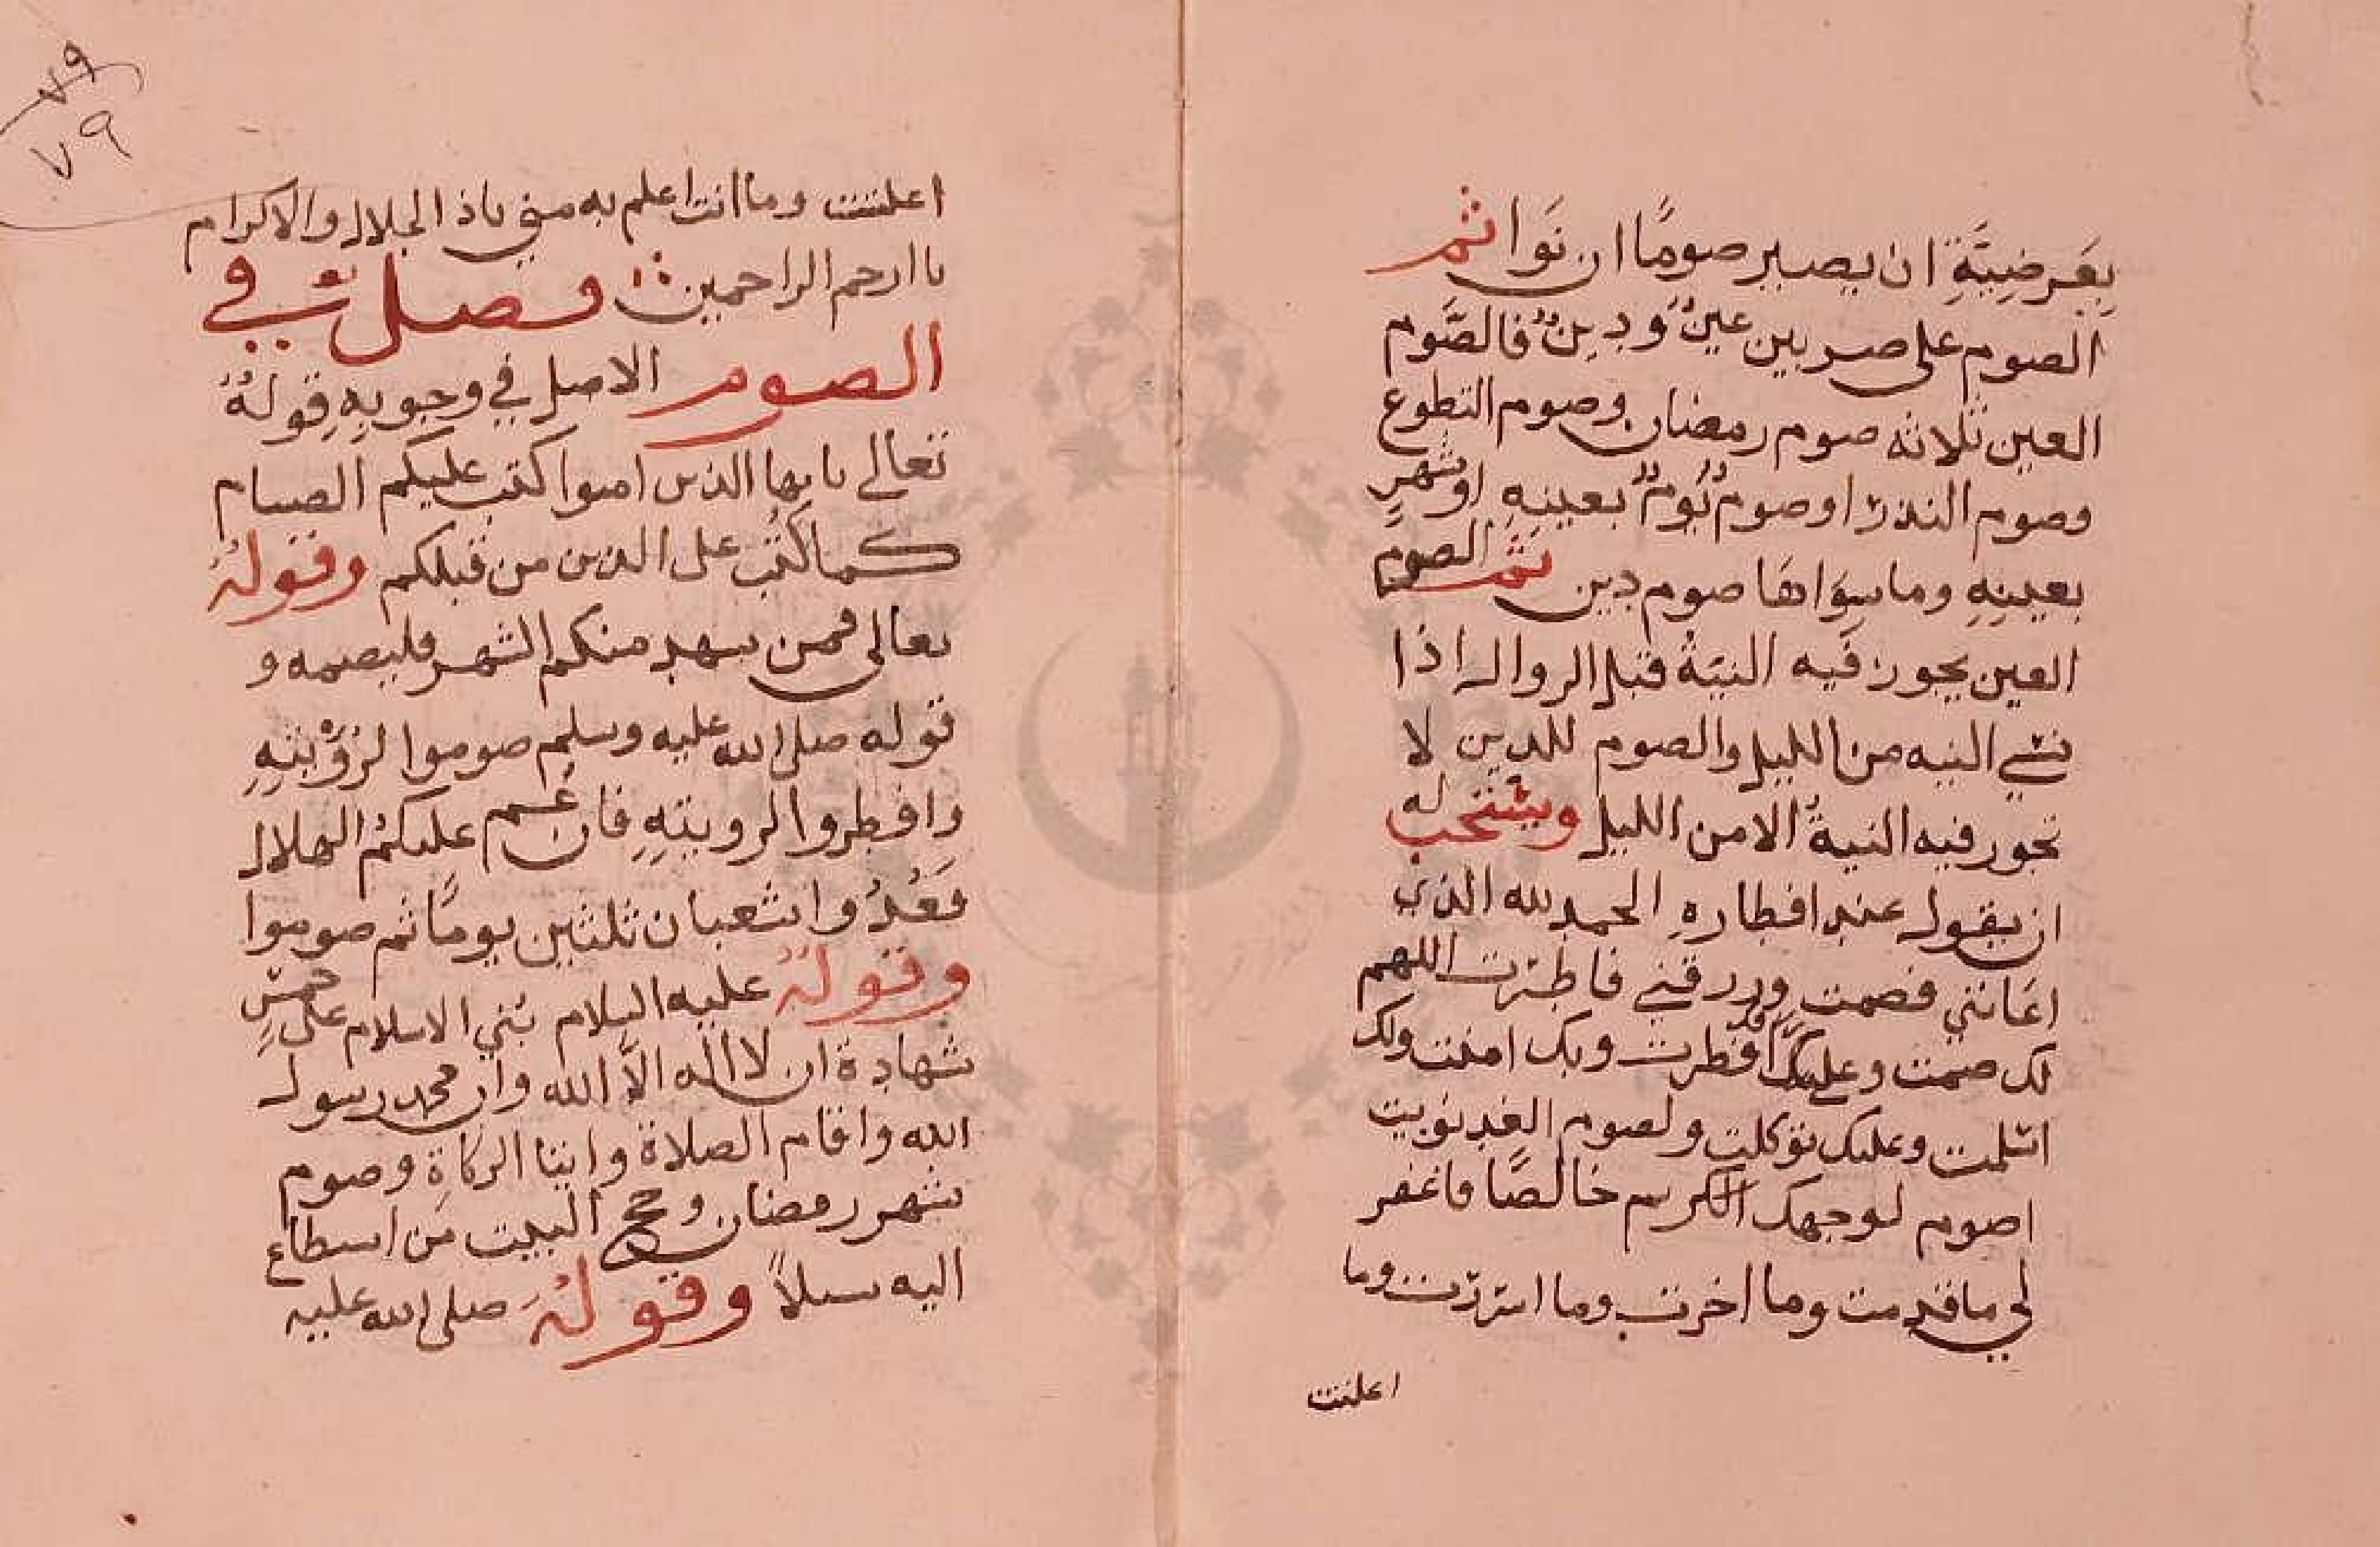 بِعَرضِيَّةِ ان يصير صومًا ان نَوَا ثم
الصوم على ضربين عينٌ ودينٌ فالصَّوم
العين ثلاثه صوم رمضان وصوم التطوع
وصوم النذر او صوم يومٌ بعينهِ او شهرٍ
بعينهِ وما سِوَاهَا صوم دين ثم الصوم
العين يجوز فيه النيَةُ قبل الزوال اذا
نسي النيه من الليل والصوم للدين لا
تجوز فيه النيةُ الا من الليل ويستحب له
ان يقول عند افطارهِ الحمد لله الذي
اعَانني فصمت ورزقني فافطرت اللهم
لك صمت وعليك افطرت وبك امنت ولك
اسلمت وعليك توكلت ولصوم الغد نويت
اصوم لوجهك الكريم خالصًا فاغفر
لي ما قدمت وما اخرت وما اسررت وما
اعلنت
٧٩
٧٩
اعلنت وما انت اعلم به مني ياذ الجلال والاكرام
يا ارحم الراحمين فصل في
الصوم الاصل في وجوبهِ قولهُ
تعالى يايها الذين امنوا كتب عليكم الصيام
كما كُتب على الذين من قبلكم وقولهُ
تعالى فمن شهد منكم الشهر فليصمه و
قوله صلى الله عليه وسلم صوموا لرؤيتهِ
وافطروا لرويتهِ فان غم عليكُم الهلال
فَعُدُوا شعبان ثلثين يومًا ثم صوموا
وقولهُ عليه السلام بُني الاسلام على خمسٍ
شهادة ان لا اله الاَّ الله وان محمد رسول
الله واقام الصلاة وايتا الزكاةِ وصوم
شهر رمضان وحج البيت مَن اسطاع
اليه سبيلاً وقولهُ صلى الله عليه